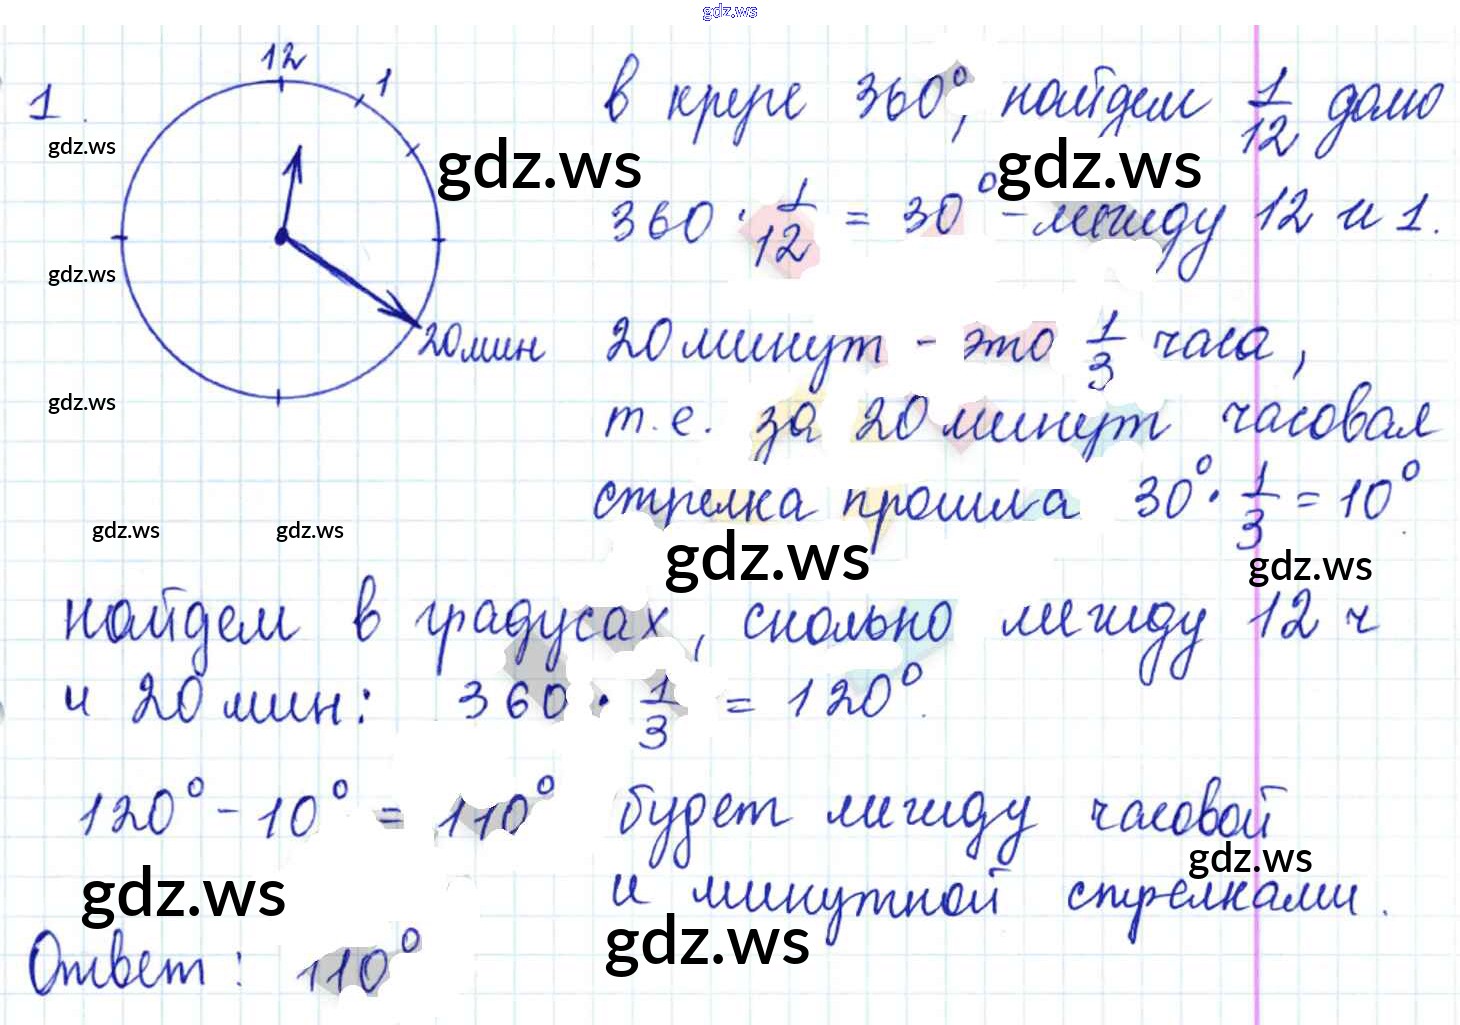 gdz.ws
12
1
1.
в круге 360°, найдем 1/12 долю
gdz.ws
gdz.ws
gdz.ws
360 · 1/12 = 30° - между 12 и 1.
gdz.ws
20 мин
20 минут - это 1/3 часа,
gdz.ws
т.е. за 20 минут часовая
стрелка прошла 30° · 1/3 = 10°.
gdz.ws
gdz.ws
gdz.ws
gdz.ws
найдем в градусах, сколько между 12 ч
и 20 мин: 360 · 1/3 = 120°.
120° - 10° = 110° будет между часовой
gdz.ws
и минутной стрелками.
gdz.ws
gdz.ws
Ответ: 110°